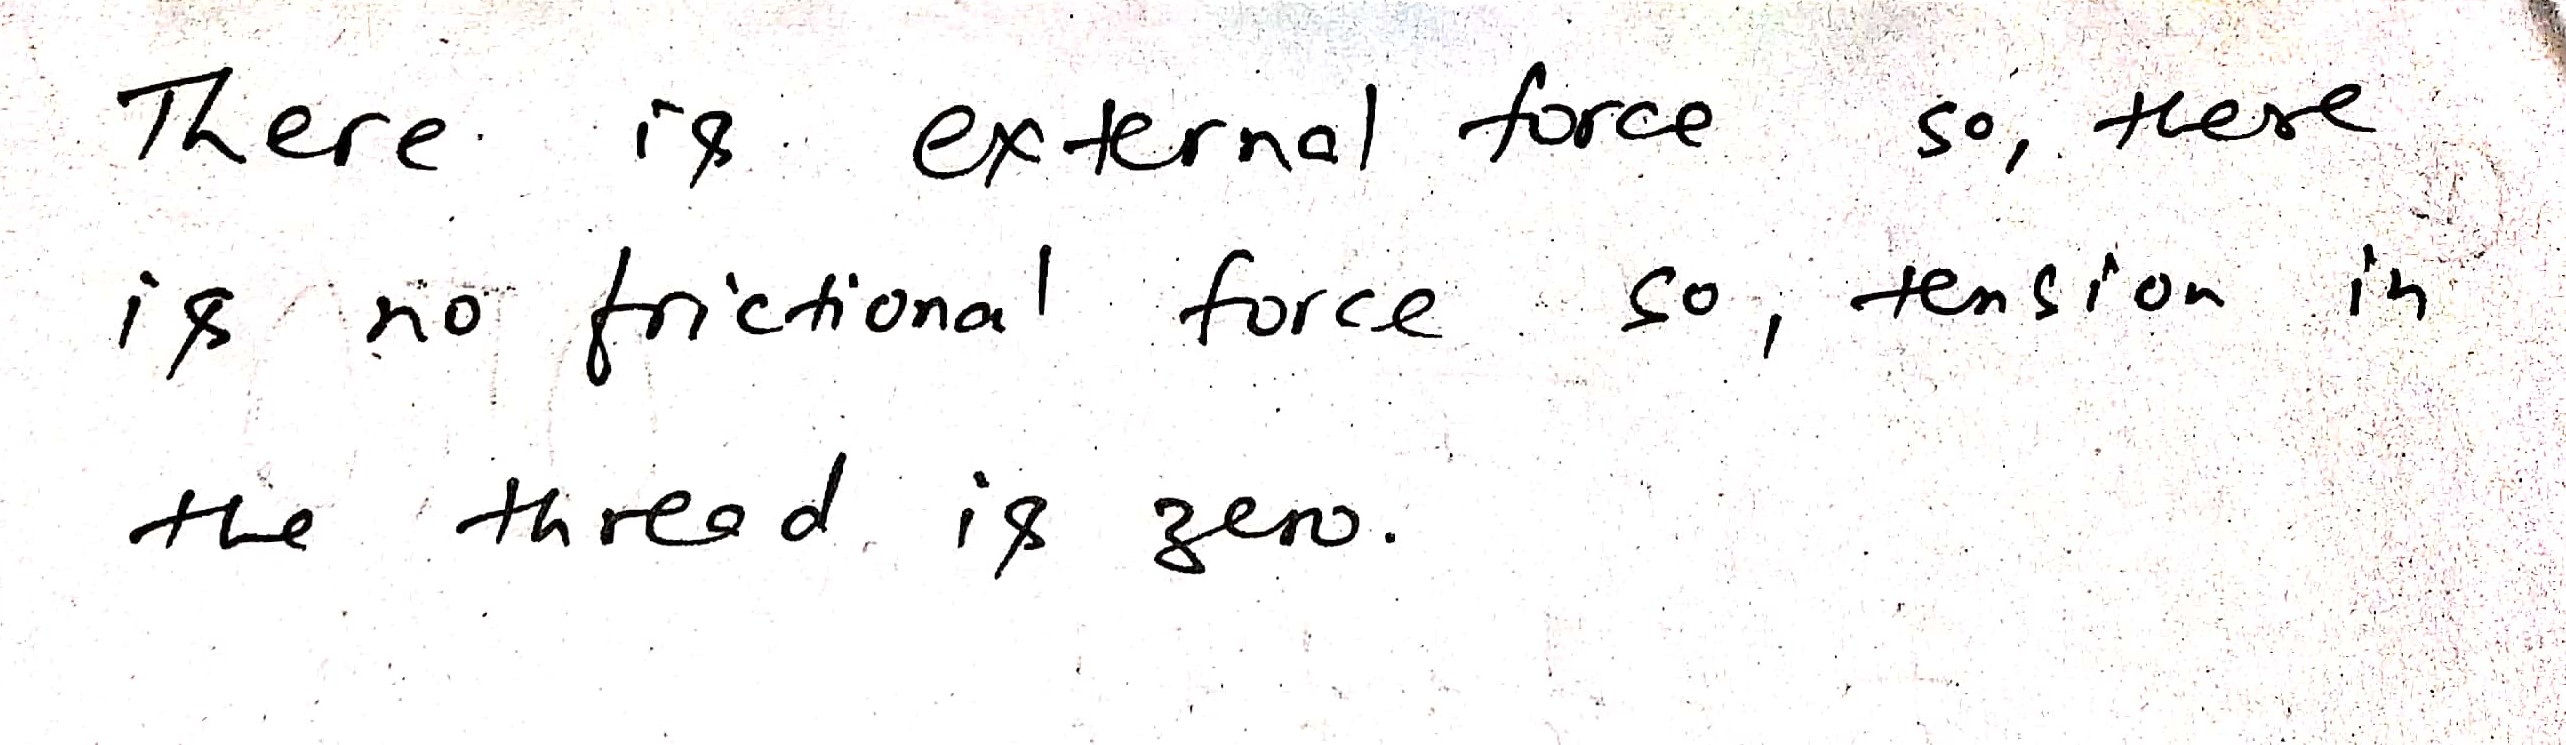 There is external force so, there
is no frictional force so, tension in
the thread is zero.